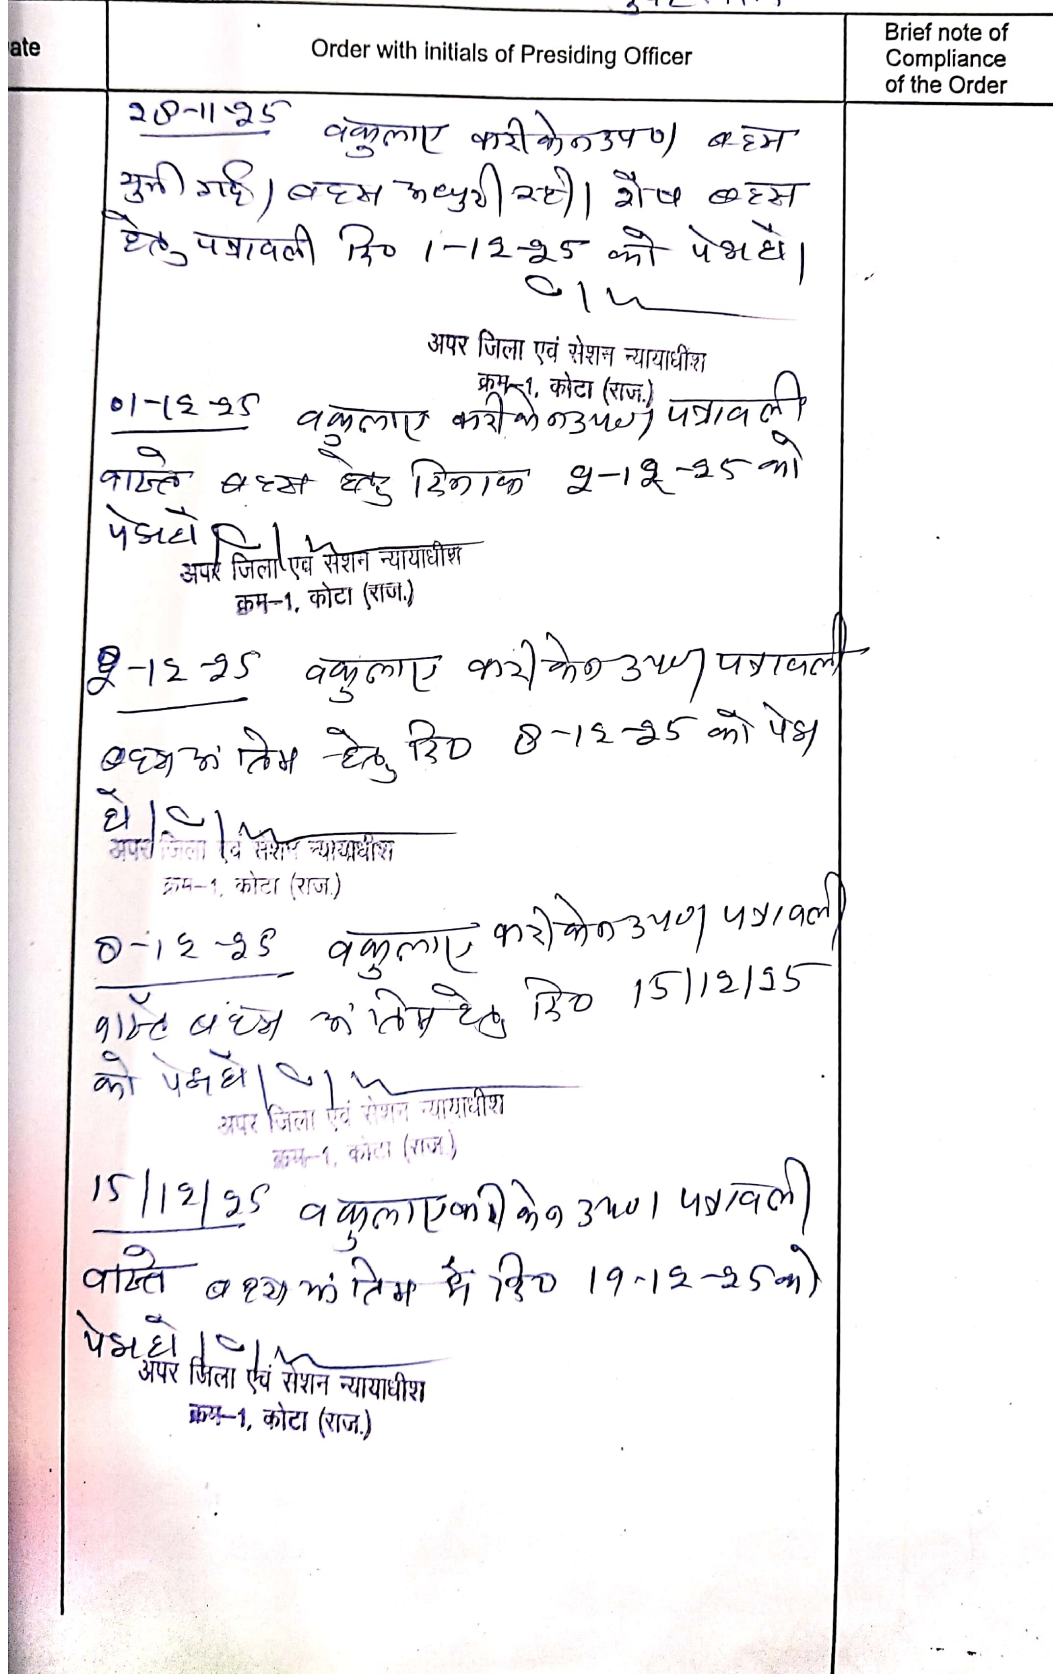 ate
Order with initials of Presiding Officer
Brief note of
Compliance
of the Order
28-11-25 वकुलाए फरीकेन उप०। बहस
सुनी गई। बहस अधुरी रही। शेष बहस
हेतु पत्रावली दि० 1-12-25 को पेश हो।
अपर जिला एवं सेशन न्यायाधीश
क्रम-1, कोटा (राज.)
01-12-25 वकुलाए फरीकेन उप०। पत्रावली
वास्ते बहस हेतु दिनांक 2-12-25 को
पेश हो
अपर जिला एवं सेशन न्यायाधीश
क्रम-1, कोटा (राज.)
2-12-25 वकुलाए फरीकेन उप०। पत्रावली
बहस अंतिम हेतु दि० 8-12-25 को पेश
हो।
अपर जिला एवं सेशन न्यायाधीश
क्रम-1, कोटा (राज.)
8-12-25 वकुलाए फरीकेन उप०। पत्रावली
वास्ते बहस अंतिम हेतु दि० 15/12/25
को पेश हो।
अपर जिला एवं सेशन न्यायाधीश
क्रम-1, कोटा (राज.)
15/12/25 वकुलाए फरीकेन उप०। पत्रावली
वास्ते बहस अंतिम में दि० 19-12-25 को
पेश हो।
अपर जिला एवं सेशन न्यायाधीश
क्रम-1, कोटा (राज.)